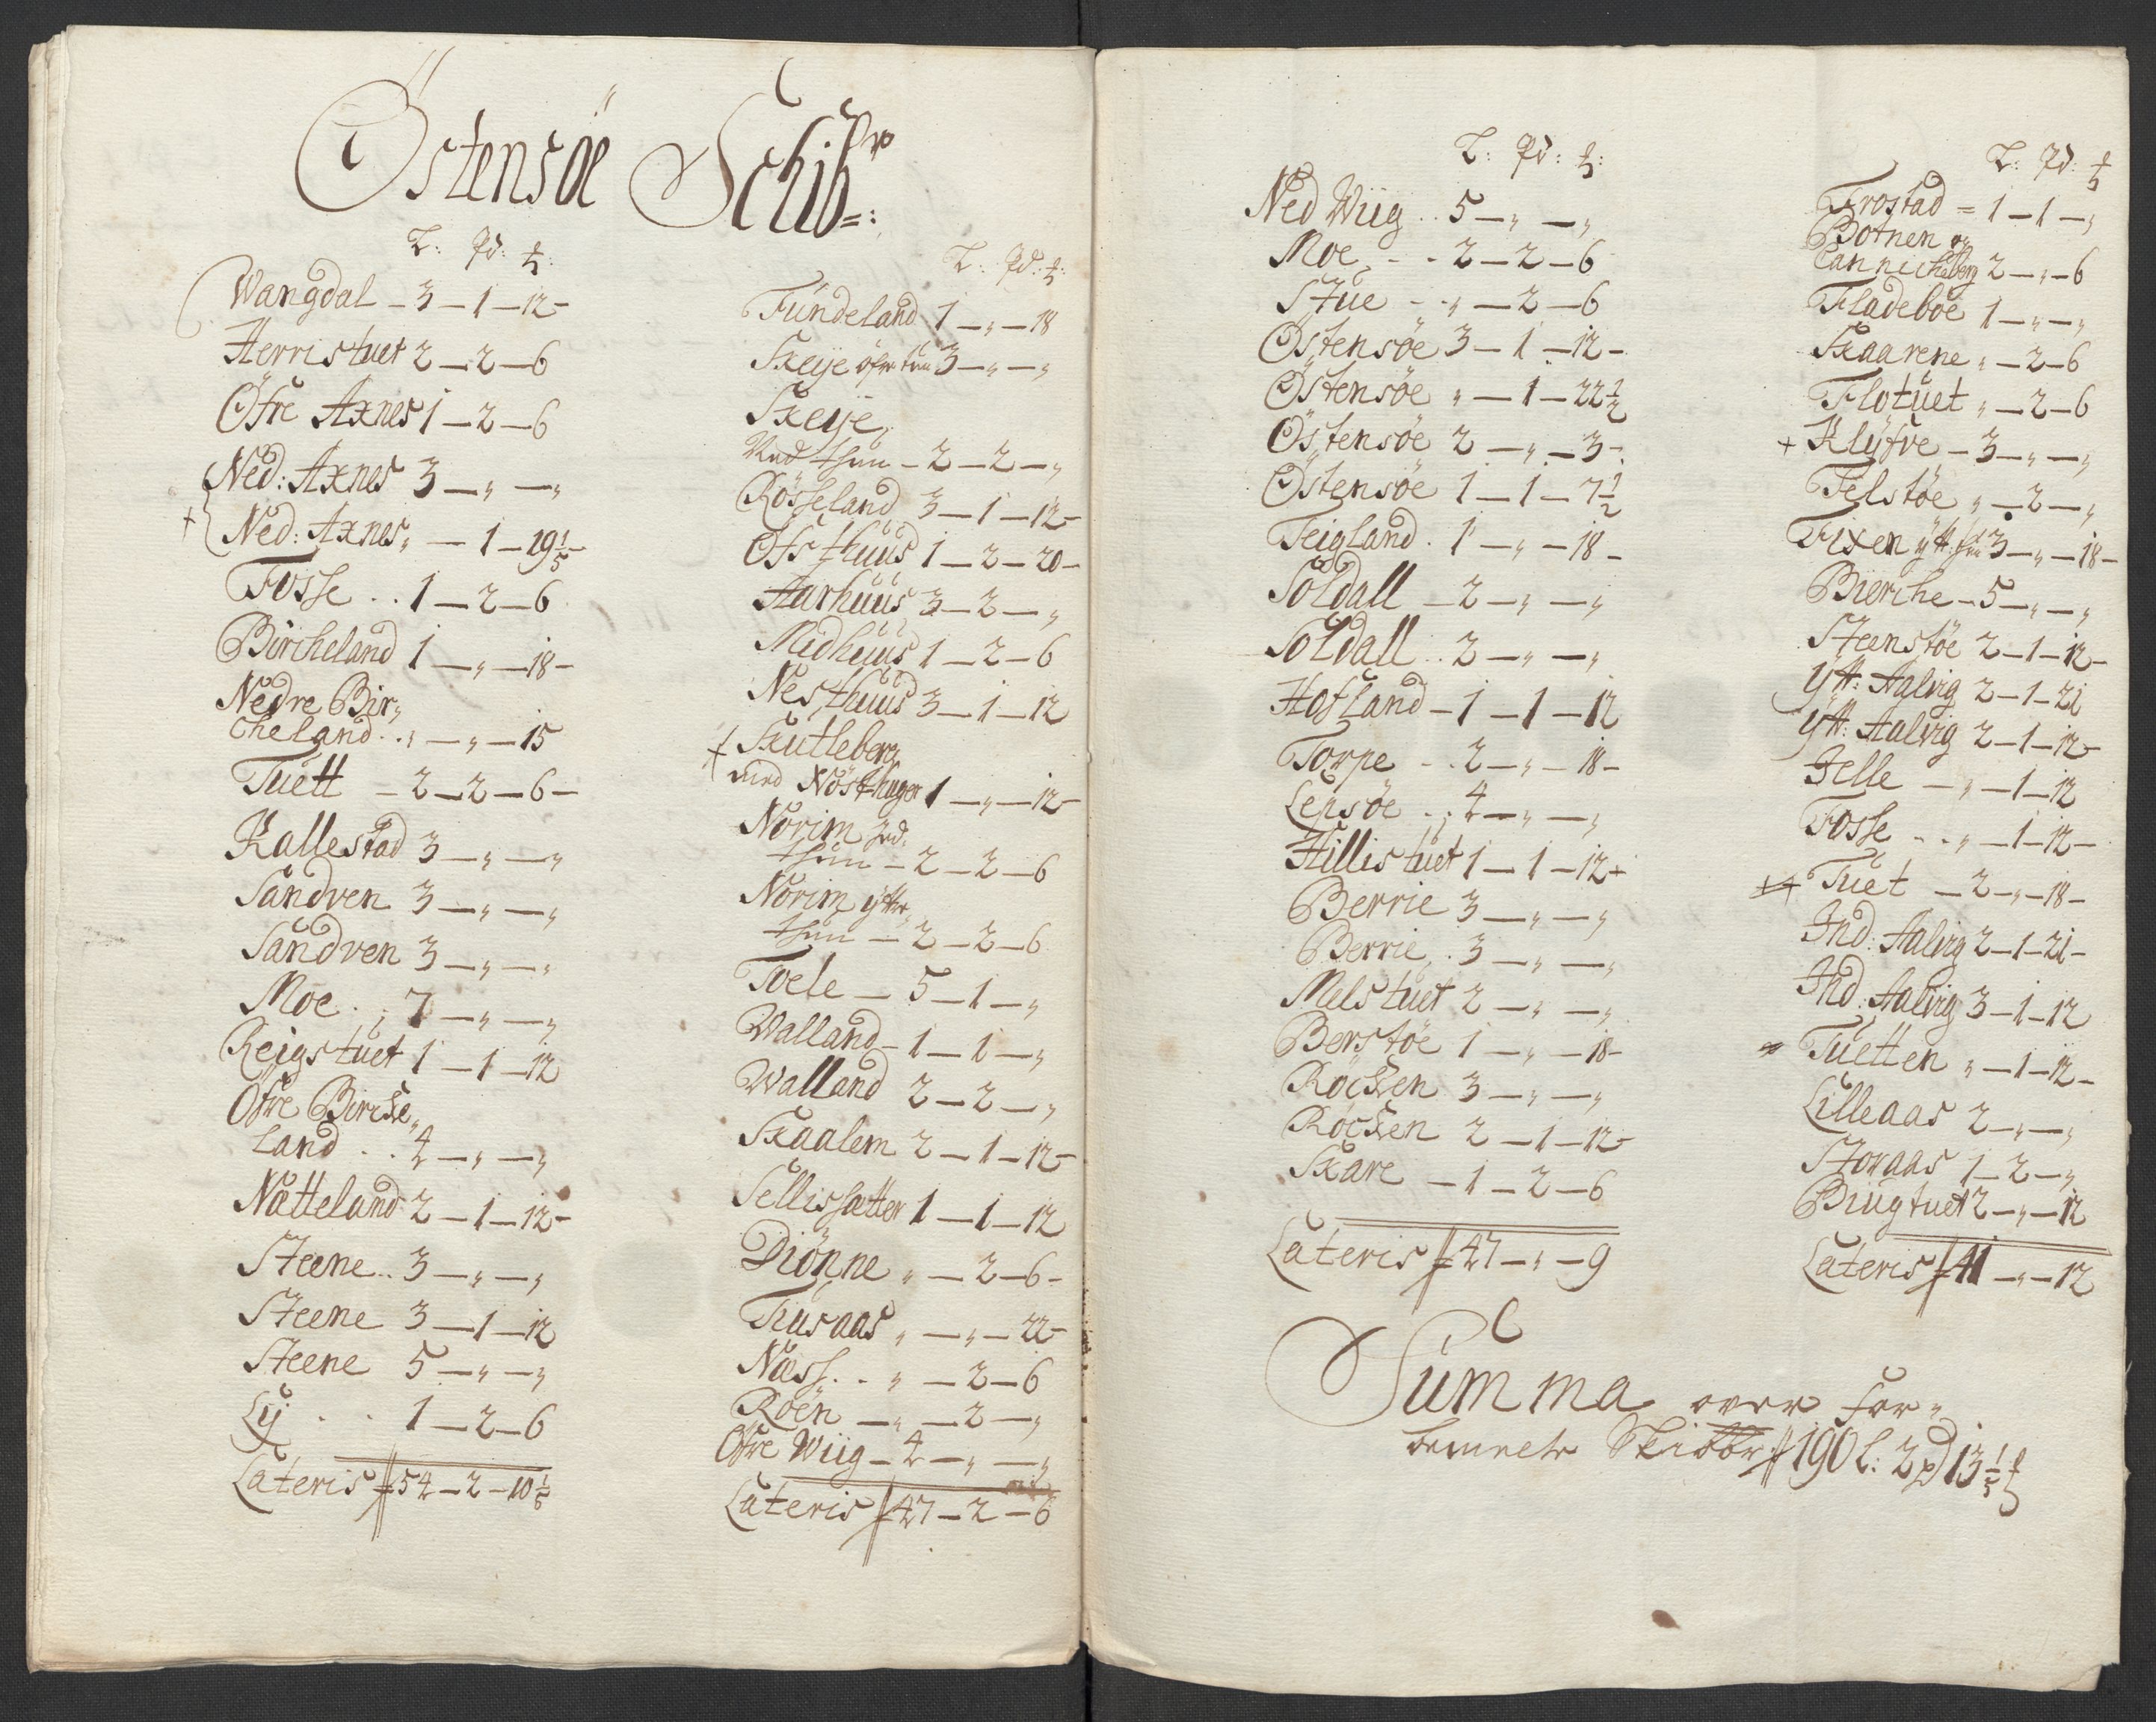 Östensöe Schibr:
L: Pd: ℔:
Wangdal – 3 – 1 – 12 –
Herristuet 2 – 2 – 6
Öfre Axnes 1 – 2 – 6
Ned: Axnes 3 – „ – „
+ Ned: Axnes „ – 1 – 19 1/5 –
Fosse .. 1 – 2 – 6
Bircheland 1 – „ – 18 –
Nedre Bir„
cheland .. „ – „ – 15
Tuett – 2 – 2 – 6 –
Kallestad 3 – „ – „
Sandven 3 – „ – „
Sandven 3 – „ – „
Moe .. 7 – „ – „
Reigstuet 1 – 1 – 12
Öfre Birche„
Land .. 4 – „ – „
Nætteland 2 – 1 – 12 –
Steene .. 3 – „ – „
Steene 3 – 1 – 12
Steene 5 – „ – „
Lÿ . . 1 – 2 – 6
Lateris 54 – 2 – 10 1/5
L: Pd: ℔:
Fundeland 1 – „ – 18
Skeije öfre tun 3 – „ – „
Skeije
Ned thun – 2 – 2 – „
Rösseland 3 – 1 – 12 –
Ofsthuus 1 – 2 – 20 –
Aarhuus 3 – 2 – „
Midhuus 1 – 2 – 6
Nesthuus 3 – 1 – 12
+ Skutleberg
med Nösthager 1 – „ – 12 –
Norim Ind:
thun – 2 – 2 – 6
Norim ÿtter
thun – 2 – 2 – 6
Toele – 5 – 1 – „
Walland – 1 – 1 – „
Walland 2 – 2 – „
Skaalem 2 – 1 – 12 –
Sellissætter 1 – 1 – 12
Diönne „ – 2 – 6 –
Tiusaas „ – „ – 22 –
Næss . . „ – 2 – 6
Röen – „ – 2 – „
Ofre Wiig – 4 – „ – „
Lateris 47 – 2 – 6
L: Pd: ℔:
Ned Wiig .. 5 – „ – „
Moe . - . 2 – 2 – 6
Stue - - „ – 2 – 6
Östensöe 3 – 1 – 12 –
Östensöe „ – 1 – 22 1/2
Östensöe 2 – „ – 3 –
Östensöe 1 – 1 – 7 1/2
Teigland . 1 – „ – 18 –
Soldall – 2 – „ – „
Soldall .. 2 – „ – „
Hofland – 1 – 1 – 12
Torpe - . 2 – „ – 18 –
Lepsöe .. 4 – „ – „
Hillistuet 1 – 1 – 12 +
Berrie 3 – „ – „
Berrie . 3 – „ – „
Melstuet 2 – „ – „
Berstöe 1 – „ – 18 –
Röchen 3 – „ – „
Röchen 2 – 1 – 12 –
Skare – 1 – 2 – 6
Lateris 47 – „ – 9
L: Pd: ℔
Frostad = 1 – 1 – „
Botnen og
Cannicheberg 2 – „ – 6
Fladeboe 1 – „ – „
Skaarene „ – 2 – 6
Flotuet „ – 2 – 6
+ Klÿfve – 3 – „ – „
Felstöe „ – 2 – „
Fixen ÿtt: thun 3 – „ – 18 –
Bierche – 5 – „ – „
Steenstöe 2 – 1 – 12 –
Ÿtt: Aalvig 2 – 1 – 21
Ÿtt: Aalvig 2 – 1 – 12 –
Ielle – „ – 1 – 12
Fosse . . „ – 1 – 12 –
++ Tuet – 2 – „ – 18 –
Ind: Aalvig 2 – 1 – 21 –
Ind: Aalvig 3 – 1 – 12
Tuetten „ – 1 – 12 –
Lilleaas 2 – „ – „
Storaas 1 – 2 – „
Biugtuet 2 – „ – 12
Lateris 41 – „ – 12
Summa over for„
bemelte Skibbr: 190 L: 2 pd 13 1/5 ℔